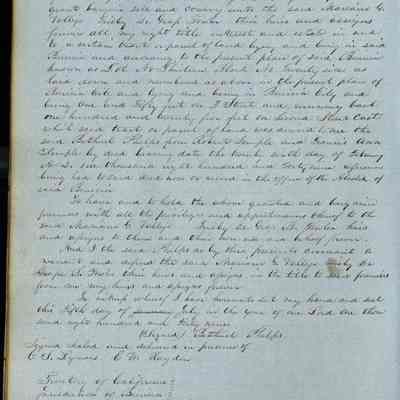 grant bargain sell and convey unto the said Mariano G.
Vallejo Frisby & Geo. N. their heirs and assigns
forever all my right title interest and estate in and
to a certain tract or parcel of land lying and being in said
Benicia and according to the present plan of said Benicia
known as Lot No. Block No. Twenty nine as
laid down and numbered as above in the present plan of
Benicia City and lying and being in Benicia City and
being One hundred Fifty feet on J Street and running back
one hundred and twenty five feet on Second Street East
which said tract or parcel of land was deeded to me the
said Bethuel Phelps from Robert Semple and Francis Ann
Semple by deed bearing date the twenty sixth day of February
A.D. One thousand eight hundred and Forty nine reference
being had to said deed now on record in the office of the Alcalde of
said Benicia
To have and to hold the above granted and bargained
premises with all the privileges and appurtenances thereof to the
said Mariano G. Vallejo Frisby & Geo. N. heirs
and assigns to them and their own use and behoof forever.
And I the said Phelps by these presents covenant to
warrant and defend the said Mariano G. Vallejo Frisby &
their heirs and assigns in the title to said premises
from me my heirs and assigns forever
In witness whereof I have hereunto set my hand and seal
this Fifth day of July in the year of our Lord One thou
sand eight hundred and Forty nine
(Signed) Bethuel Phelps
Signed sealed and delivered in presence of
C. S. Lyman C. W. Hayden
Territory of California
Jurisdiction of Benicia